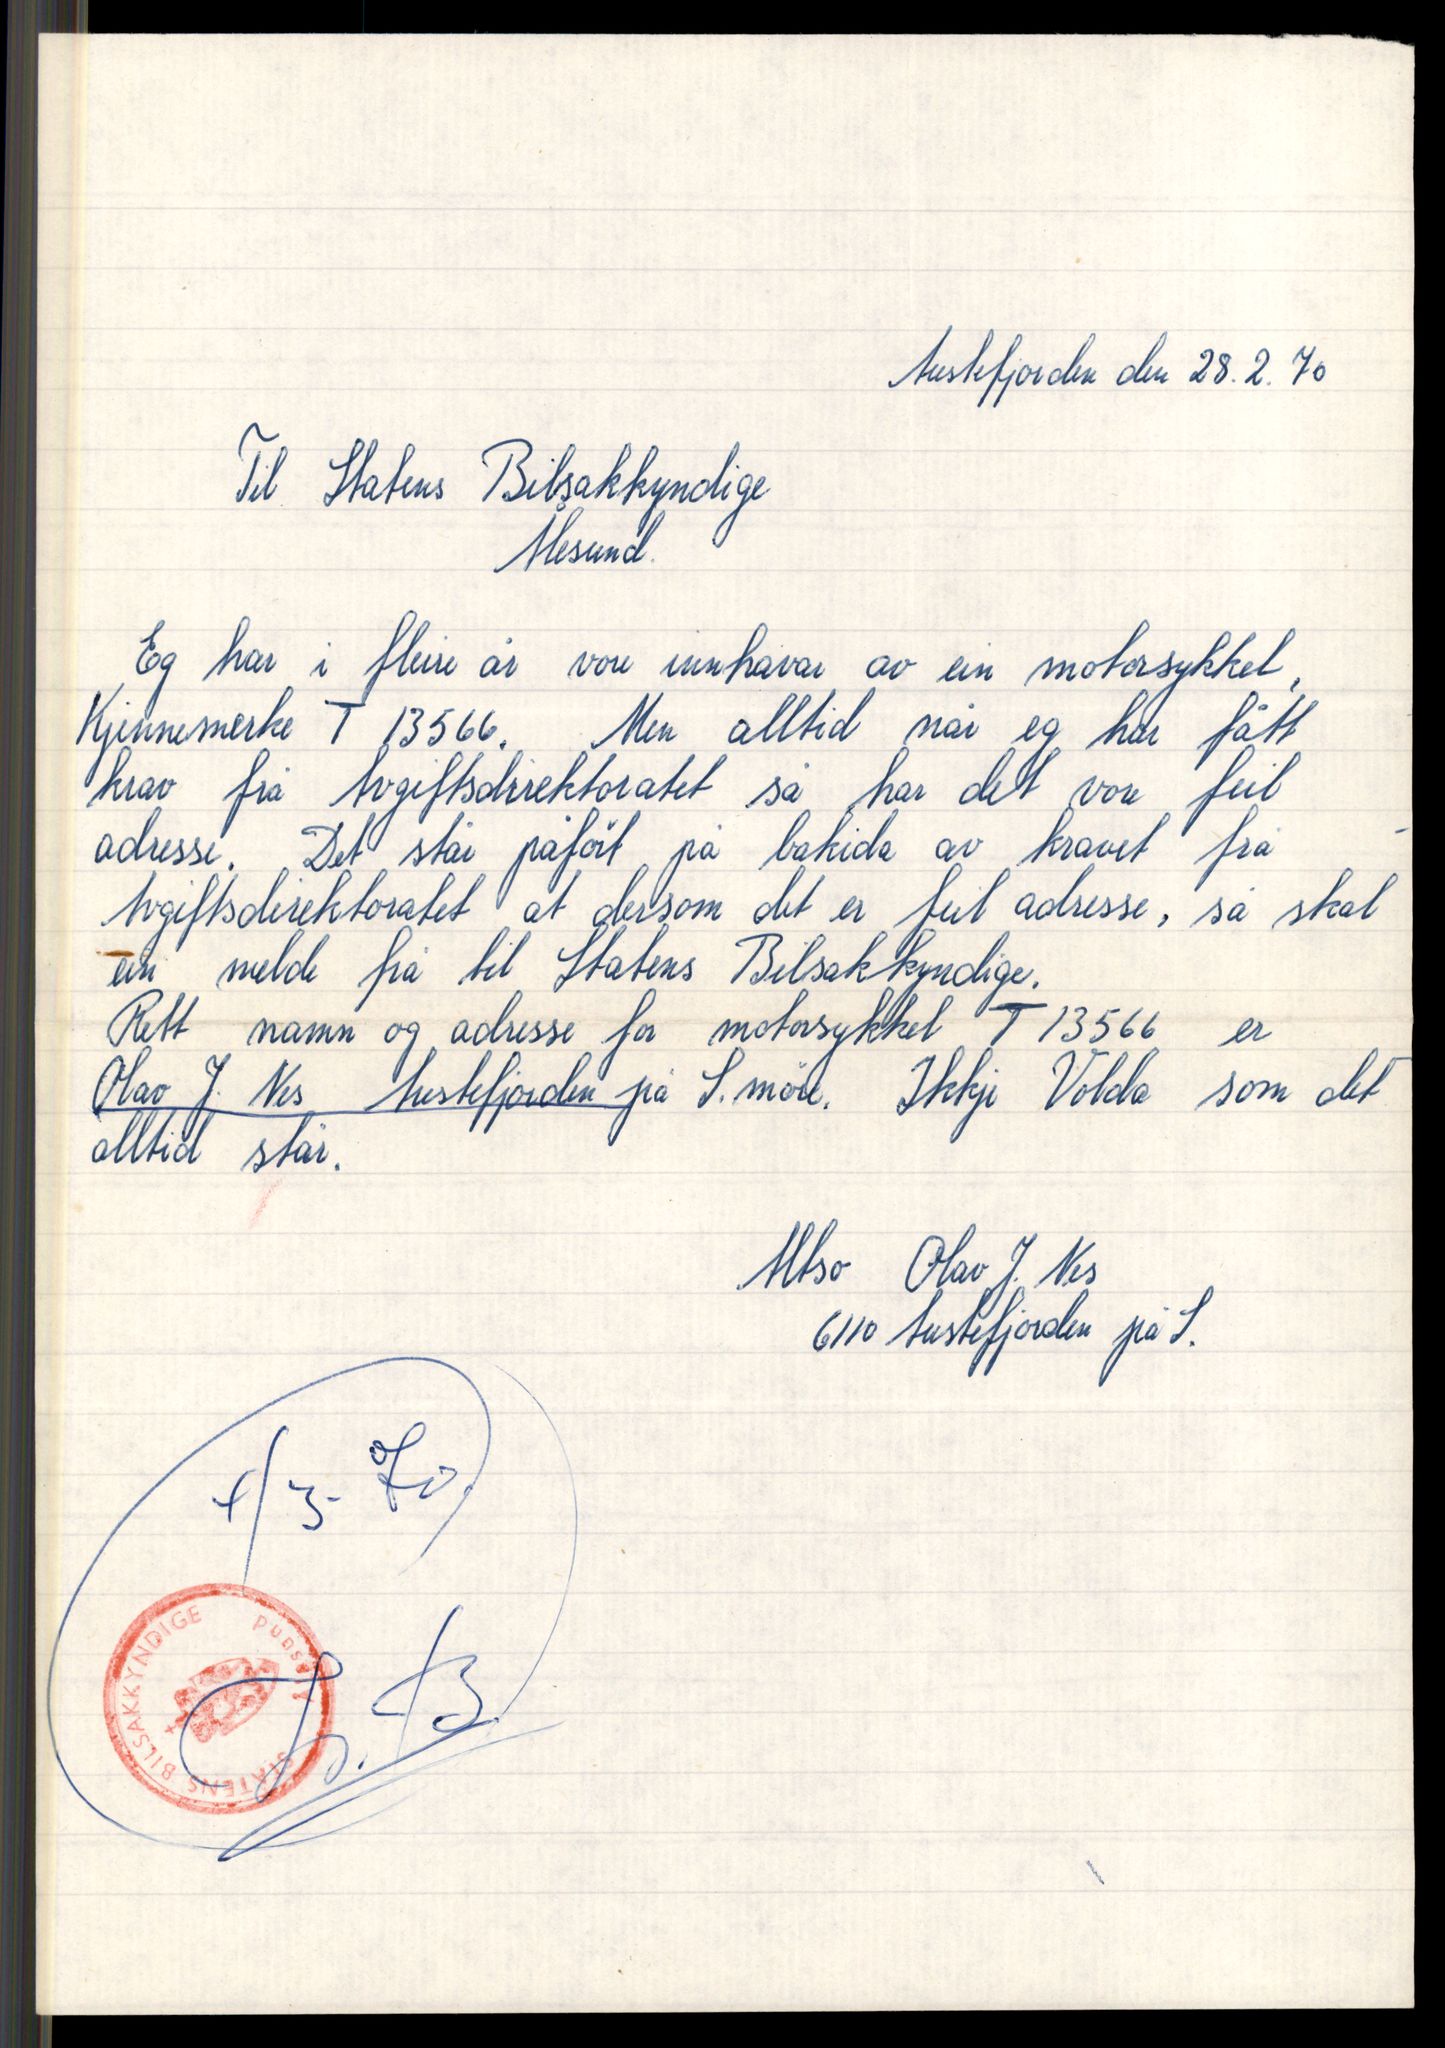 Austefjorden den 28.2.70
Til Statens Bilsakkyndige
Ålesund.
Eg har i fleire år vore innhavar av ein motorsykkel,
Kjennemerke T 13566. Men alltid når eg har fått
krav frå Avgiftsdirektoratet så har det vore feil
adresse. Det står påført på baksida av kravet frå
Avgiftsdirektoratet at dersom det er feil adresse, så skal
ein melde frå til Statens Bilsakkyndige.
Rett namn og adresse for motorsykkel T 13566 er
Olav J. Nes Austefjorden på S. møre. Ikkje Volda som det
alltid står.
Altso Olav J. Nes
6110 Austefjorden på S.
4/3-70.
STATENS BILSAKKYNDIGE
Ålesund